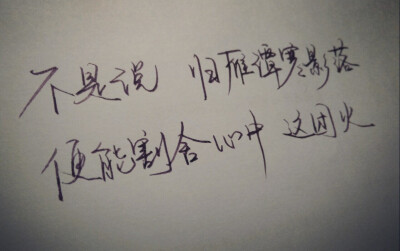 不是说 归雁潭寒影落
便能割舍心中 这团火